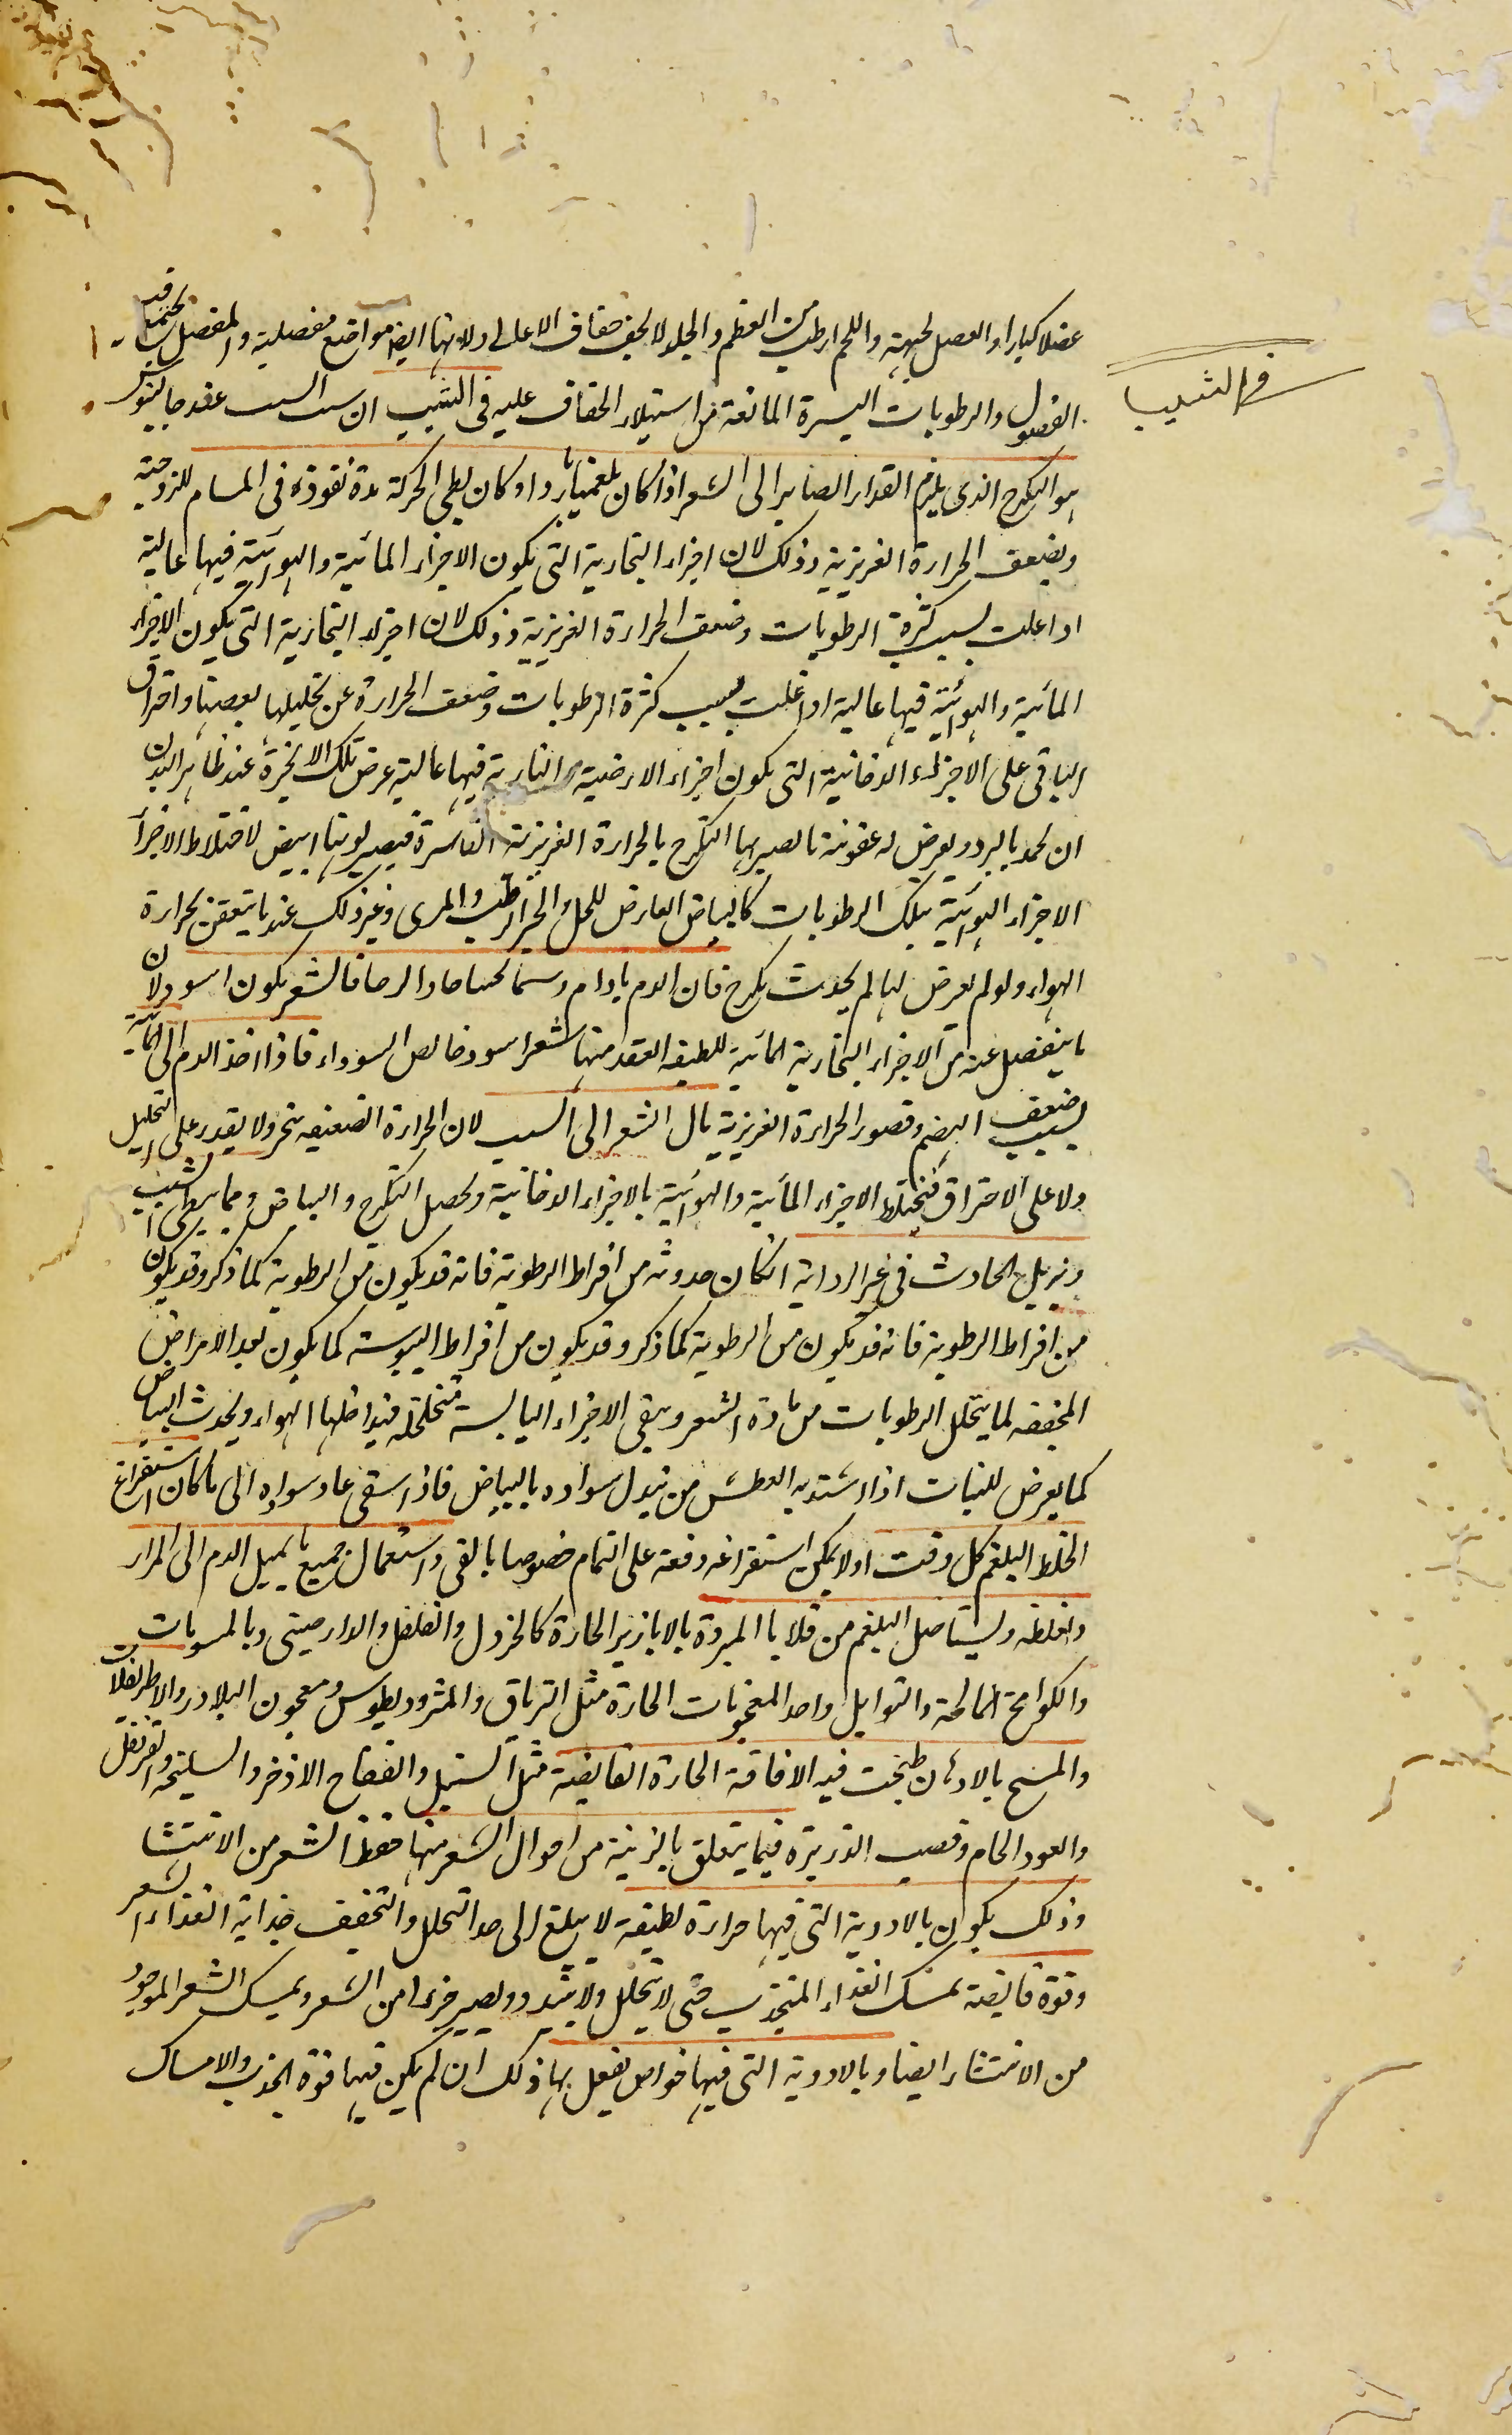 في الشيب
عضلا كبارا والعصل لجبهة واللحم ارطب من العظم والجلد لا يجف جفاف الاعالى ولانها ايضا مواضع مفصلية والمفصل يجتمع فيه
الفصول والرطوبات اليسيرة المانعة من استيلاء الجفاف عليه فى الشيب ان سبب الشيب عند جالينوس
هو التكرج الذى يلزم الغذاء الصاير الى الشعر اذا كان بلغميا باردا و كان بطى الحركة مدة نفوذه فى المسام للزوجته
وبضعف الحرارة الغريزية وذلك لان اجزاء البخارية التى يكون الاجزاء المائية والهوائية فيها غالبة
اذا غلبت بسبب كثرة الرطوبات وضعف الحرارة الغريزية وذلك لان اجزاء البخارية التى يكون الاجزاء
المائية والهوائية فيها غالبة اذا غلبت بسبب كثرة الرطوبات وضعف الحرارة عن تحليلها بعضها واحراق
الباقى على الاجزاء الدخانية التى يكون اجزاء الارضية والنارية فيها غالبة عرض تلك الابخرة عند ظاهر البدن
ان تجمد بالبرد ويعرض له عفونة ما يصير بها التكرج بالحرارة الغريزية القاسرة فيصير لونها ابيض لاختلاط الاجزاء
الاجزاء الهوائية بتلك الرطوبات كالبياض العارض للخل والخبز الرطب والمرى وغير ذلك عند ما يتعفن بحرارة
الهواء ولو لم يعرض لها لم يحدث تكرج فان الدم ما دام فالشعر يكون اسود لان
ما ينفصل عنه من الاجزاء البخارية المائية للطيفه العقد منها شعر اسود خالص السوداء فاذا اخذ الدم الى المائية
بسبب ضعف الهضم وقصور الحرارة الغريزية مال الشعر الى الشيب لان الحرارة الضعيفه تبخر ولا يقدر على التحليل
ولا على الاحتراق فتختلط الاجزاء المائية والهوائية بالاجزاء الدخانية ويحصل التكرج والبياض ومما يبطى الشيب
ويزيل الحادث فى غير ان كان حدوثه من افراط الرطوبة فانه قد يكون من الرطوبة كما ذكر وقد يكون
من افراط الرطوبة فانه قد يكون من الرطوبة كما ذكر وقد يكون من افراط اليبوسة كما يكون بعد الامراض
المجففه لما يتحلل الرطوبات من مادة الشعر ويبقى الاجزاء اليابسة متخلخلة فيداخلها الهواء ويحدث البياض
كما يعرض للنبات اذا اشتد به العطش من تبدل سواده بالبياض فاذا سقى عاد سواده الى ما كان استفراغ
الخلط البلغم كل وقت اذ لا يمكن استفراغه دفعة على التمام خصوصا بالقى واستعمال جميع ما يميل الدم الى المرار
واغلظه ويستاصل البلغم من قلايا المبردة بالابازير الحارة كالخردل والفلفل والدارصينى وبالمسويات
والكوامخ المالحة والتوابل واحد المعجونات الحارة مثل الترياق والمثروديطوس ومعجون البلادر والاطريفلات
والمسح بالادهان طبخت فيه الافاقة الحارة القابضة مثل السنبل والفقاح الاذخر والسليخه والقرنفل
والعود الخام وقصب الذريرة فيما يتعلق بالزينة من احوال الشعر منها حفظ الشعر من الانتشا
وذلك يكون بالادوية التى فيها حرارة لطيفة لا يبلغ الى حد التحلل والتجفيف جذابة الغذاء الشعر
وقوة قابضة تمسك الغذاء المنجذب حتى لا يتحلل ولا يتبدد ويصير جزءا من الشعر ويمسك الشعر الموجود
من الانتثار ايضا وبالادوية التى فيها خواص يفعل بها ذلك ان لم يكن فيها قوة الجذب والامساك